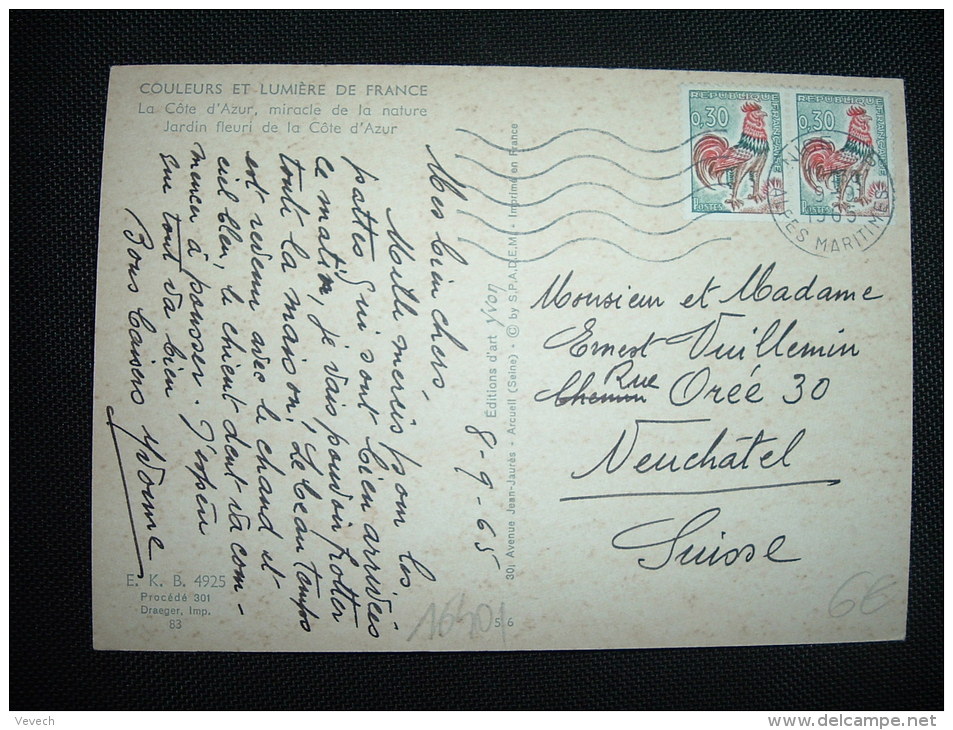 COULEURS ET LUMIÈRE DE FRANCE
La Côte d'Azur, miracle de la nature
Jardin fleuri de la Côte d'Azur
Mes bien chers,
Mille mercis pour les
pattes qui sont bien arrivées
ce matin, je vais pouvoir frotter
toute la maison! Le beau temps
est revenu avec le chaud et
ciel bleu, le chient dent va com-
mencer à pousser. J'espère
que tout va bien
Bons baisers Yvonne
8-9-65
E. K. B. 4925
Procédé 301
Draeger, Imp.
83
Editions d'art Yvon
30, Avenue Jean-Jaurès - Arcueil (Seine) - © by S.P.A.D.E.M. - Imprimé en France
56
REPUBLIQUE FRANCAISE
0,30
POSTES
REPUBLIQUE FRANCAISE
0,30
ALPES MARITIMES
1965
Monsieur et Madame
Ernest Vuillemin
Rue
Chemin Orée 30
Neuchâtel
Suisse
6€
Vevech
www.delcampe.net